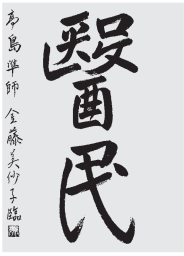 醫民
高島準師 金藤美紗子臨